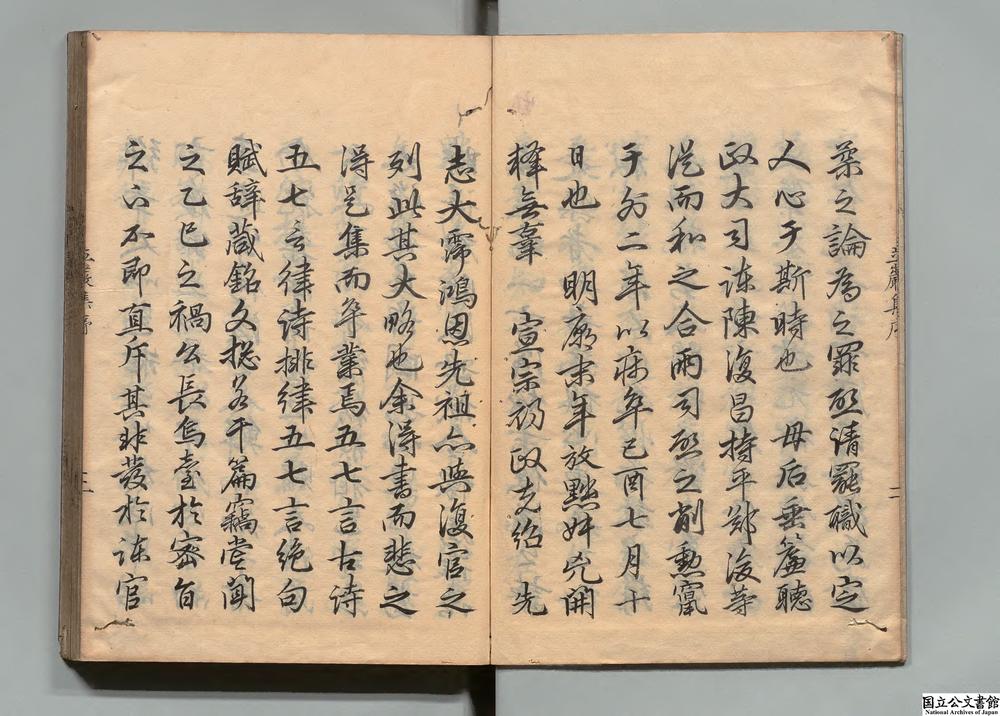 柔之論為之罪啓請罷職以定
人心于斯時也　母后垂簾聽
政大司諫陳復昌持平鄭浚等
從而和之合兩司啓之削勳竄
于外二年以病卒己酉七月十
日也　明廟末年放黜奸兇開
釋無辜　宣宗初政克紹　先
志大霈鴻恩先祖亦與復官之
列此其大略也余得書而悲之
得是集而卒業焉五七言古詩
五七言律詩排律五七言絶句
賦辞葴銘文摠若干篇竊嘗聞
之乙巳之禍公長烏臺於密旨
之下不即直斥其非發於諫官
玉巖集序
二
三
国立公文書館
National Archives of Japan